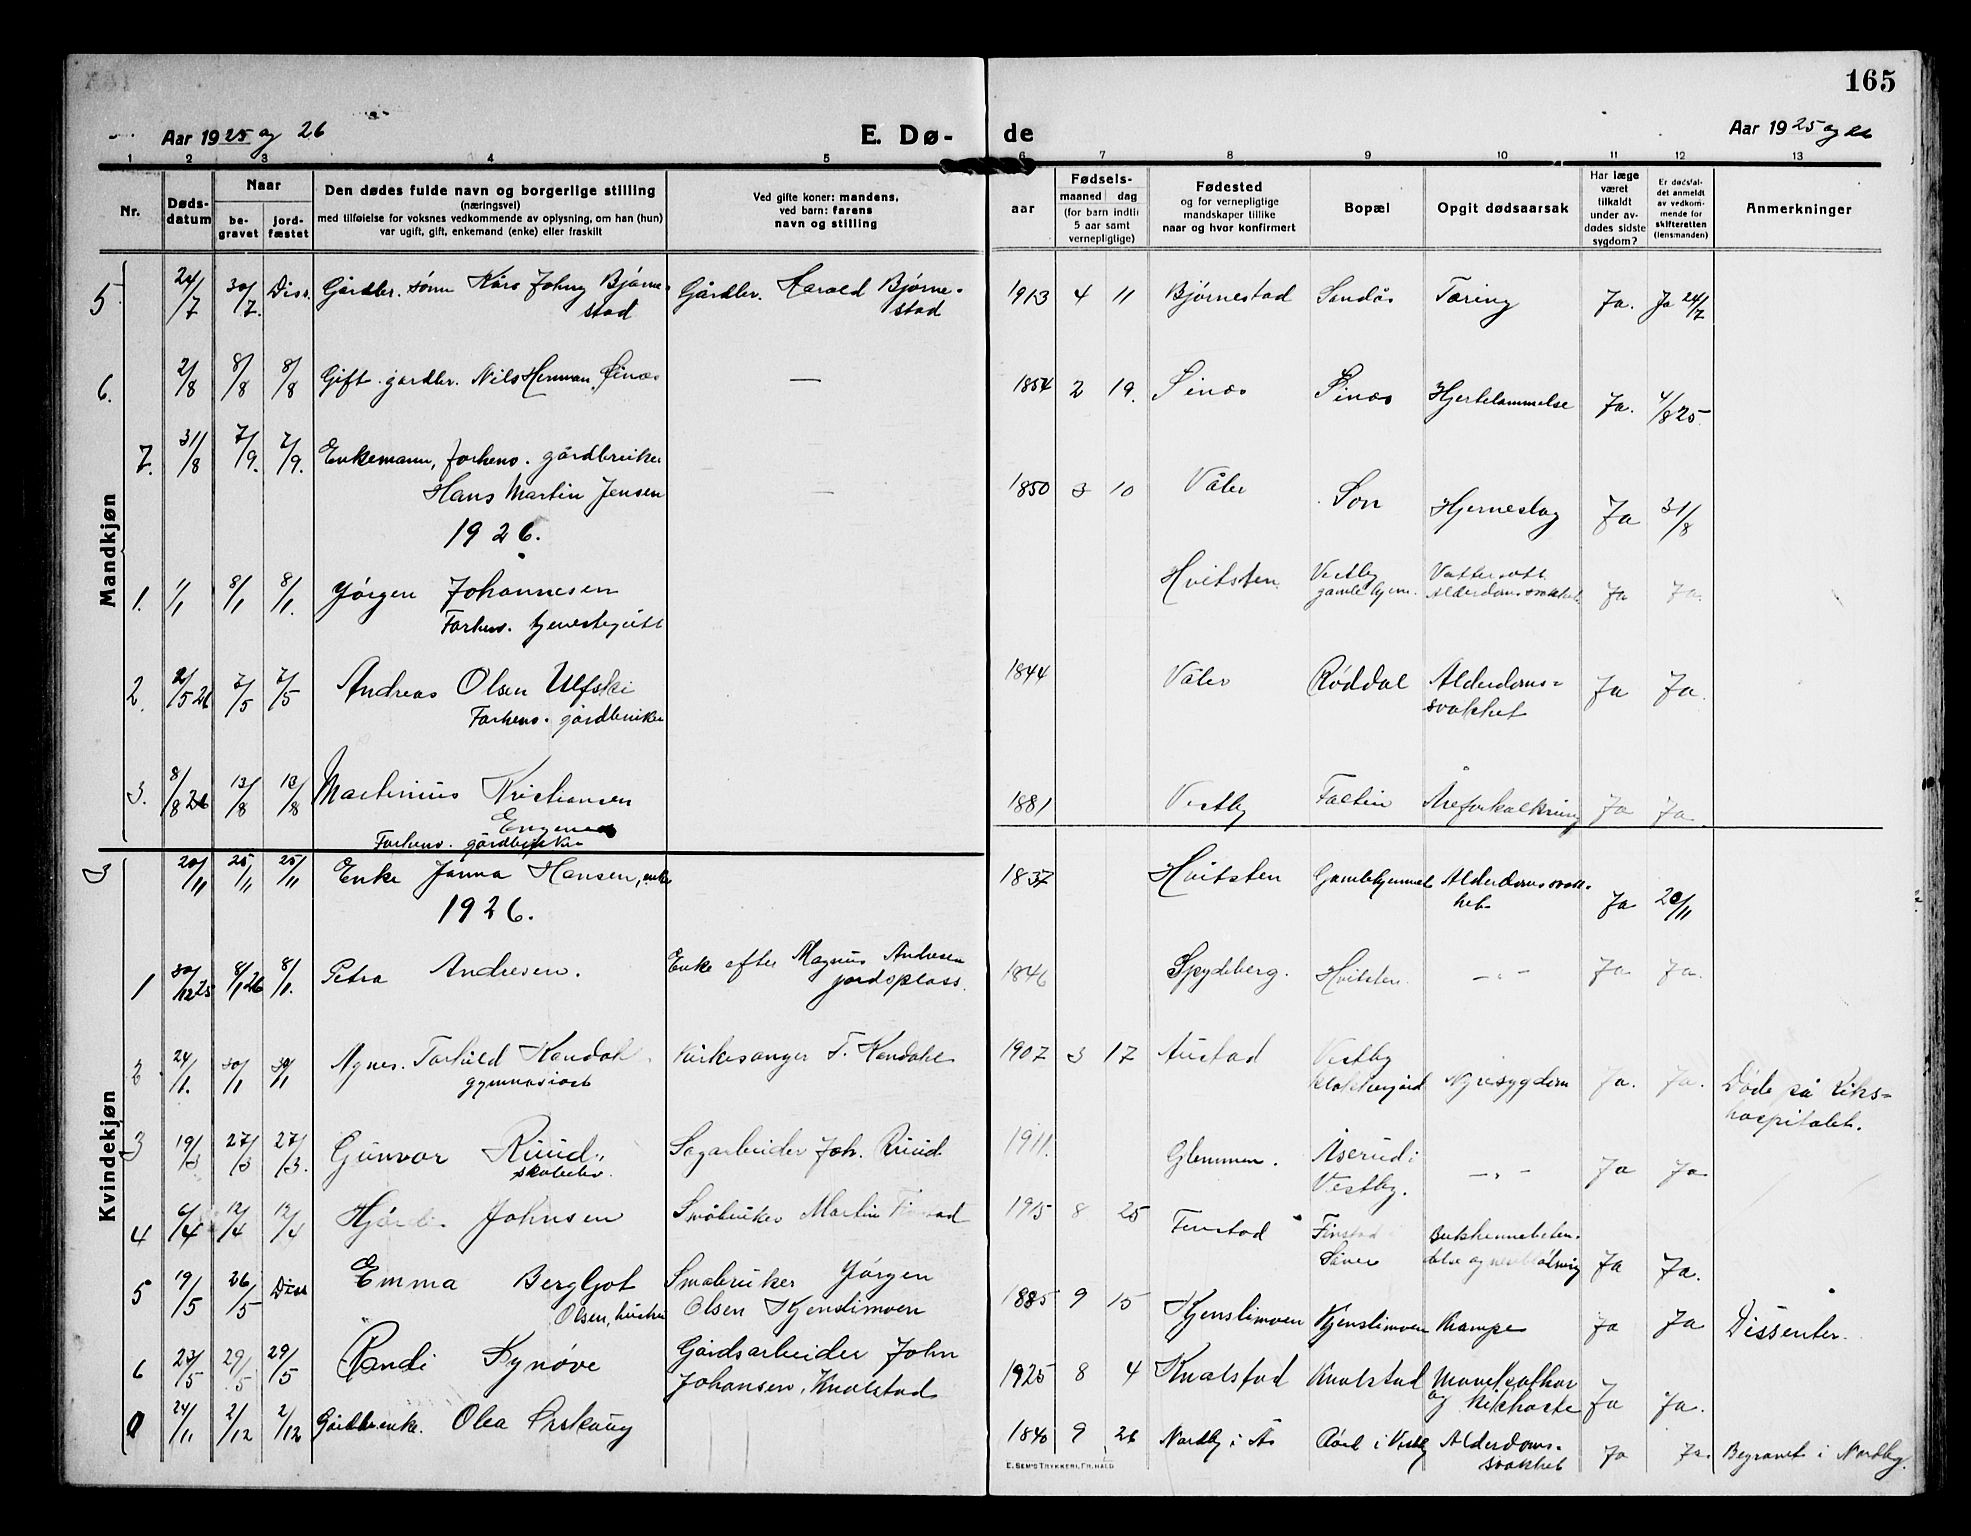 165
Aar 1925 og 26
E. Dø- de
Aar 1925 og 26
1 2 3 4 5 6 7 8 9 10 11 12 13
Nr.
Døds-
datum
Naar
be-
gravet
jord-
fæstet
Den dødes fulde navn og borgerlige stilling
(næringsvei)
med tilføielse for voksnes vedkommende av oplysning, om han (hun)
var ugift, gift, enkemand (enke) eller fraskilt
Ved gifte koner: mandens,
ved barn: farens
navn og stilling
Fødsels-
aar
maaned dag
(for barn indtil
5 aar samt
vernepligtige)
Fødested
og for vernepligtige
mandskaper tillike
naar og hvor konfirmert
Bopæl
Opgit dødsaarsak
Har læge
været
tilkaldt
under av-
dødes sidste
sygdom?
Er dødsfal-
det anmeldt
av vedkom-
mende for
skifteretten
(lensmanden)
Anmerkninger
Mandkjøn
5. 24/7 30/7. Diss. Gårdbr. sønn Kåre Johny Bjørne- Gårdbr. Harald Bjørne- 1913 4 11 Bjørnestad Sandås Tæring Ja. Ja 24/7
stad stad
6. 2/8 8/8 8/8 Gift gardbr. Nils Herman — 1854 2 19. Hjertelammelse Ja. 4/8 25
7. 31/8 7/9. 7/9. Enkemann, forhenv. gårdbruker
Hans Martin Jensen — 1850 3 10 Våler Son Hjerneslag Ja 31/8
1926.
1. 1/1 8/1 8/1. Jørgen Johannesen Hvitsten Vestby Ja Ja.
Forhenv. tjenestegutt gamlehjem. Alderdomssvakhet
2. 2/5 26 7/5 7/5 Andreas Olsen Ulfski 1844 Våler Røddal Alderdoms- Ja Ja.
Forhenv. gårdbruker svakhet
3. 8/8 26 13/8 13/8 Martinius Kristiansen 1881 Vestby Åreforkalkning Ja Ja.
Forhenv. gårdbruker
Kvindekjøn
3 20/11 25/11 25/11 Enke Janna Hansen, enke 1837 Hvitsten Gamlehjemmet Alderdomssvak- Ja 20/11
1926. het
1 30/12 25 8/1 26 8/1. Petra Andresen. Enke efter Magnus Andresen 1846 Spydeberg. Hvitsten. — „ — Ja Ja.
jordsplass.
2 24/1. 30/1 30/1 Agnes Torhild Kandahl Kirkesanger T. Kandahl 1907 3 17 Austad Vestby
gymnasiast klokkergård Nyresygdom Ja. Ja. Døde på Riks-
hospitalet.
3 19/3 27/3 27/3. Gunvor Ruud, Sagarbeider Joh. Ruud 1911. Glemmen. Åserud i — „ — Ja Ja
skoleelev. Vestby.
4 6/4 12/4 12/4 Johnsen Småbruker Martin 1915 8 25 Finstad Finstad Ja Ja.
5 19/5 26/5 Diss Emma Bergljot Småbruker Jørgen
Olsen, hustru Olsen Kjenslimoen 1885 9 15 Kjenslimoen Kjenslimoen Krampe Ja Ja Dissenter.
6 23/5 29/5 29/5 Randi Synøve Gårdsarbeider John 1925 8 4 Knalstad Knalstad
Johansen, Knalstad og kikhoste Ja Ja.
24/11 2/12 2/12 Gårdbr. enke. Olea 1840 9 26 Nordby i Ås i Vestby Alderdoms- Ja Ja. Begravet i Nordby.
svakhet
E. SEM'S TRYKKERI, FR.HALD